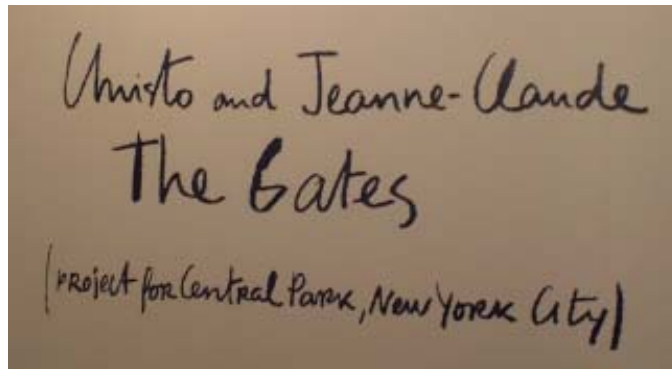 Christo and Jeanne-Claude
The Gates
(PROJECT FOR Central PARK, NEW YORK City)